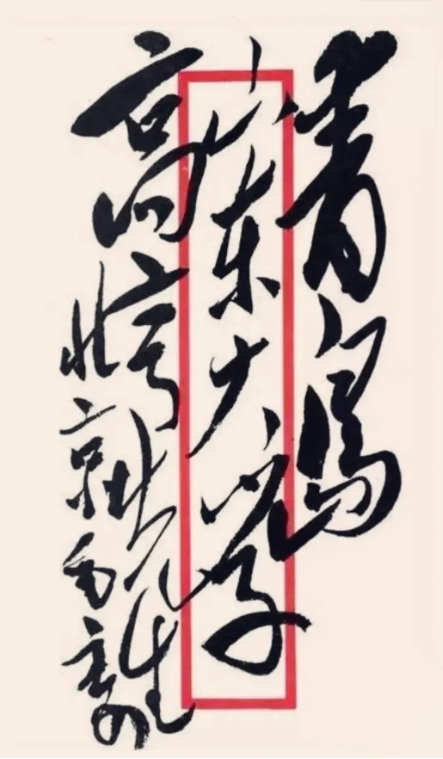 青島
山东大学
高亨先生
北京 毛